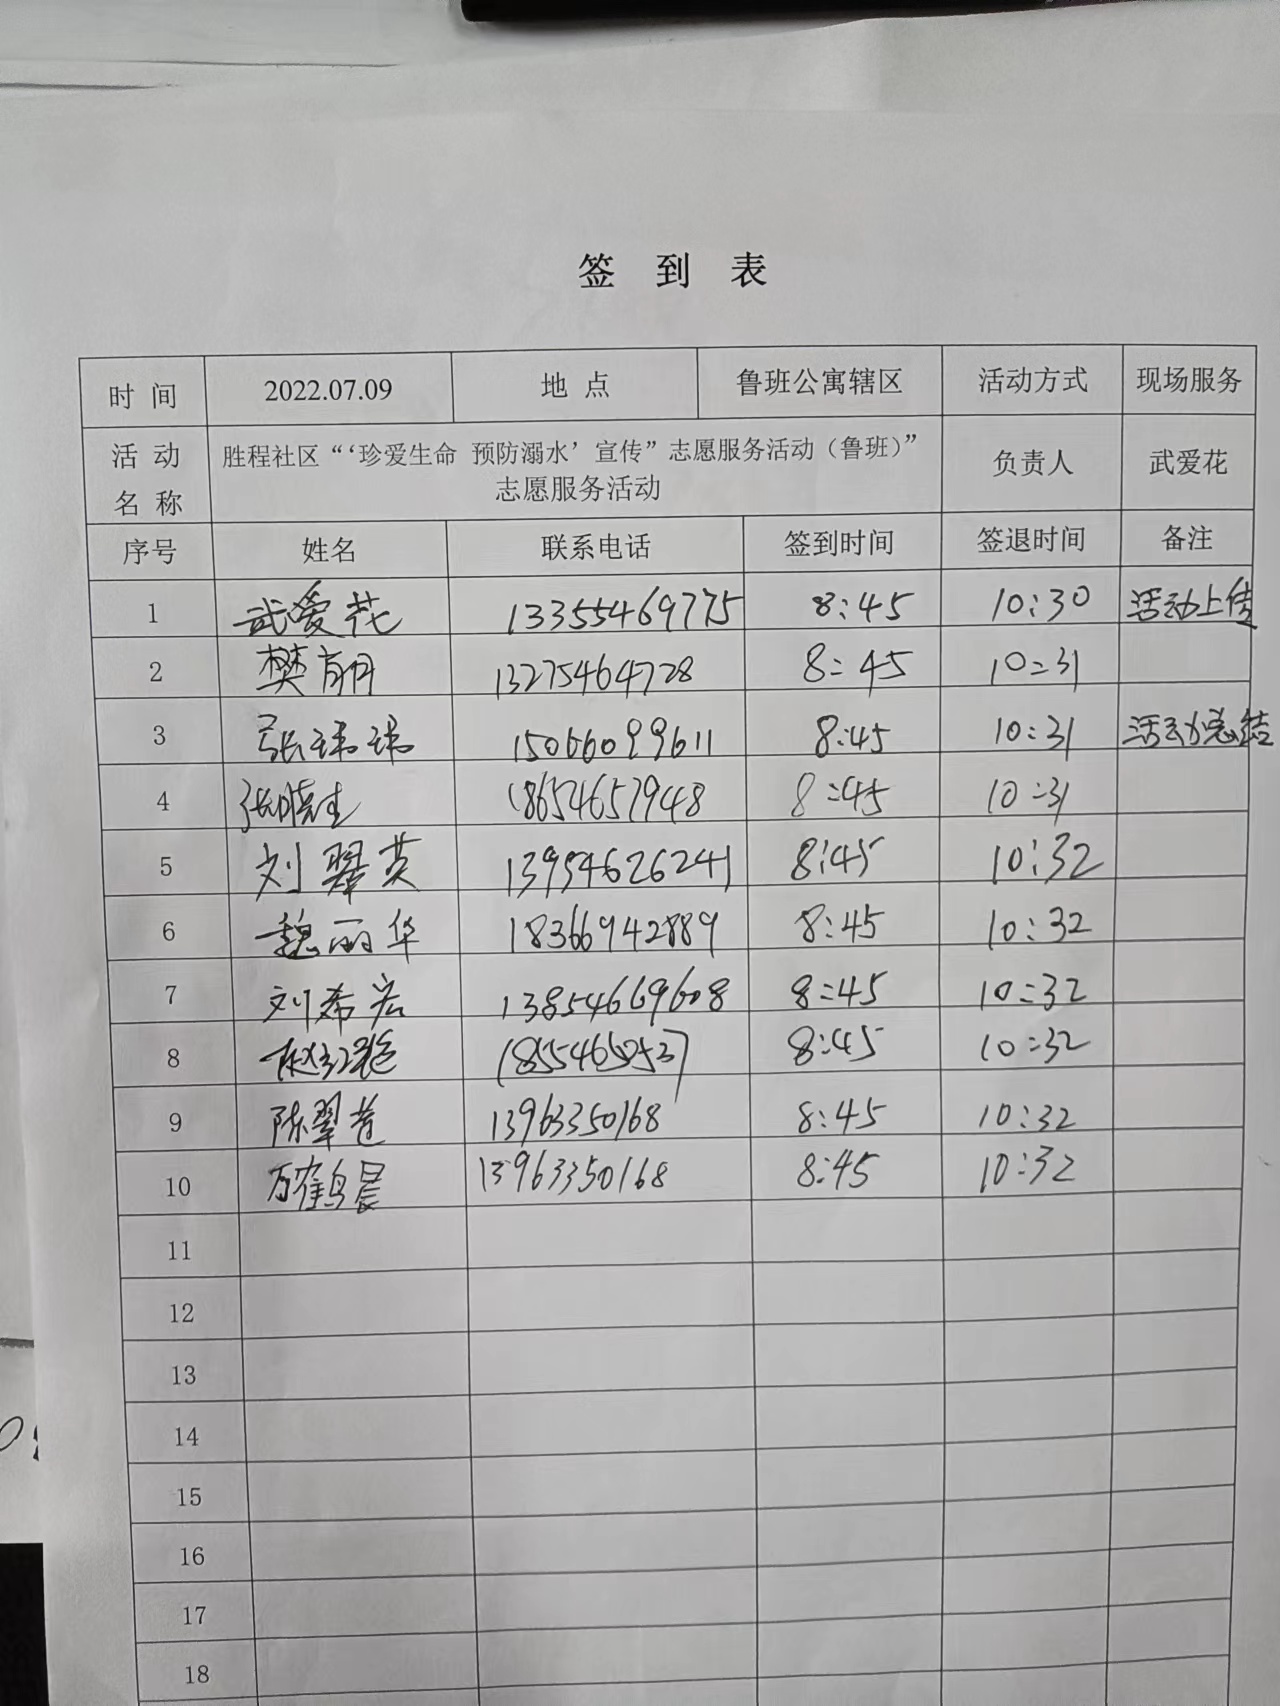 签 到 表
时 间 2022.07.09 地 点 鲁班公寓辖区 活动方式 现场服务
活 动 名 称 胜程社区“‘珍爱生命 预防溺水’宣传”志愿服务活动（鲁班）” 负责人 武爱花
志愿服务活动
序号 姓名 联系电话 签到时间 签退时间 备注
1 武爱花 13355469775 8:45 10:30 活动上传
2 樊育朋 13275464728 8:45 10:31
3 张珠珠 15066099611 8:45 10:31 活动总结
4 张晓生 18654657948 8:45 10:31
5 刘翠英 13954626241 8:45 10:32
6 魏丽华 18366942889 8:45 10:32
7 刘希宏 13854669608 8:45 10:32
8 赵红艳 8:45 10:32
9 陈翠苍 13963350168 8:45 10:32
10 万鹤晨 13963350168 8:45 10:32
11
12
13
14
15
16
17
18